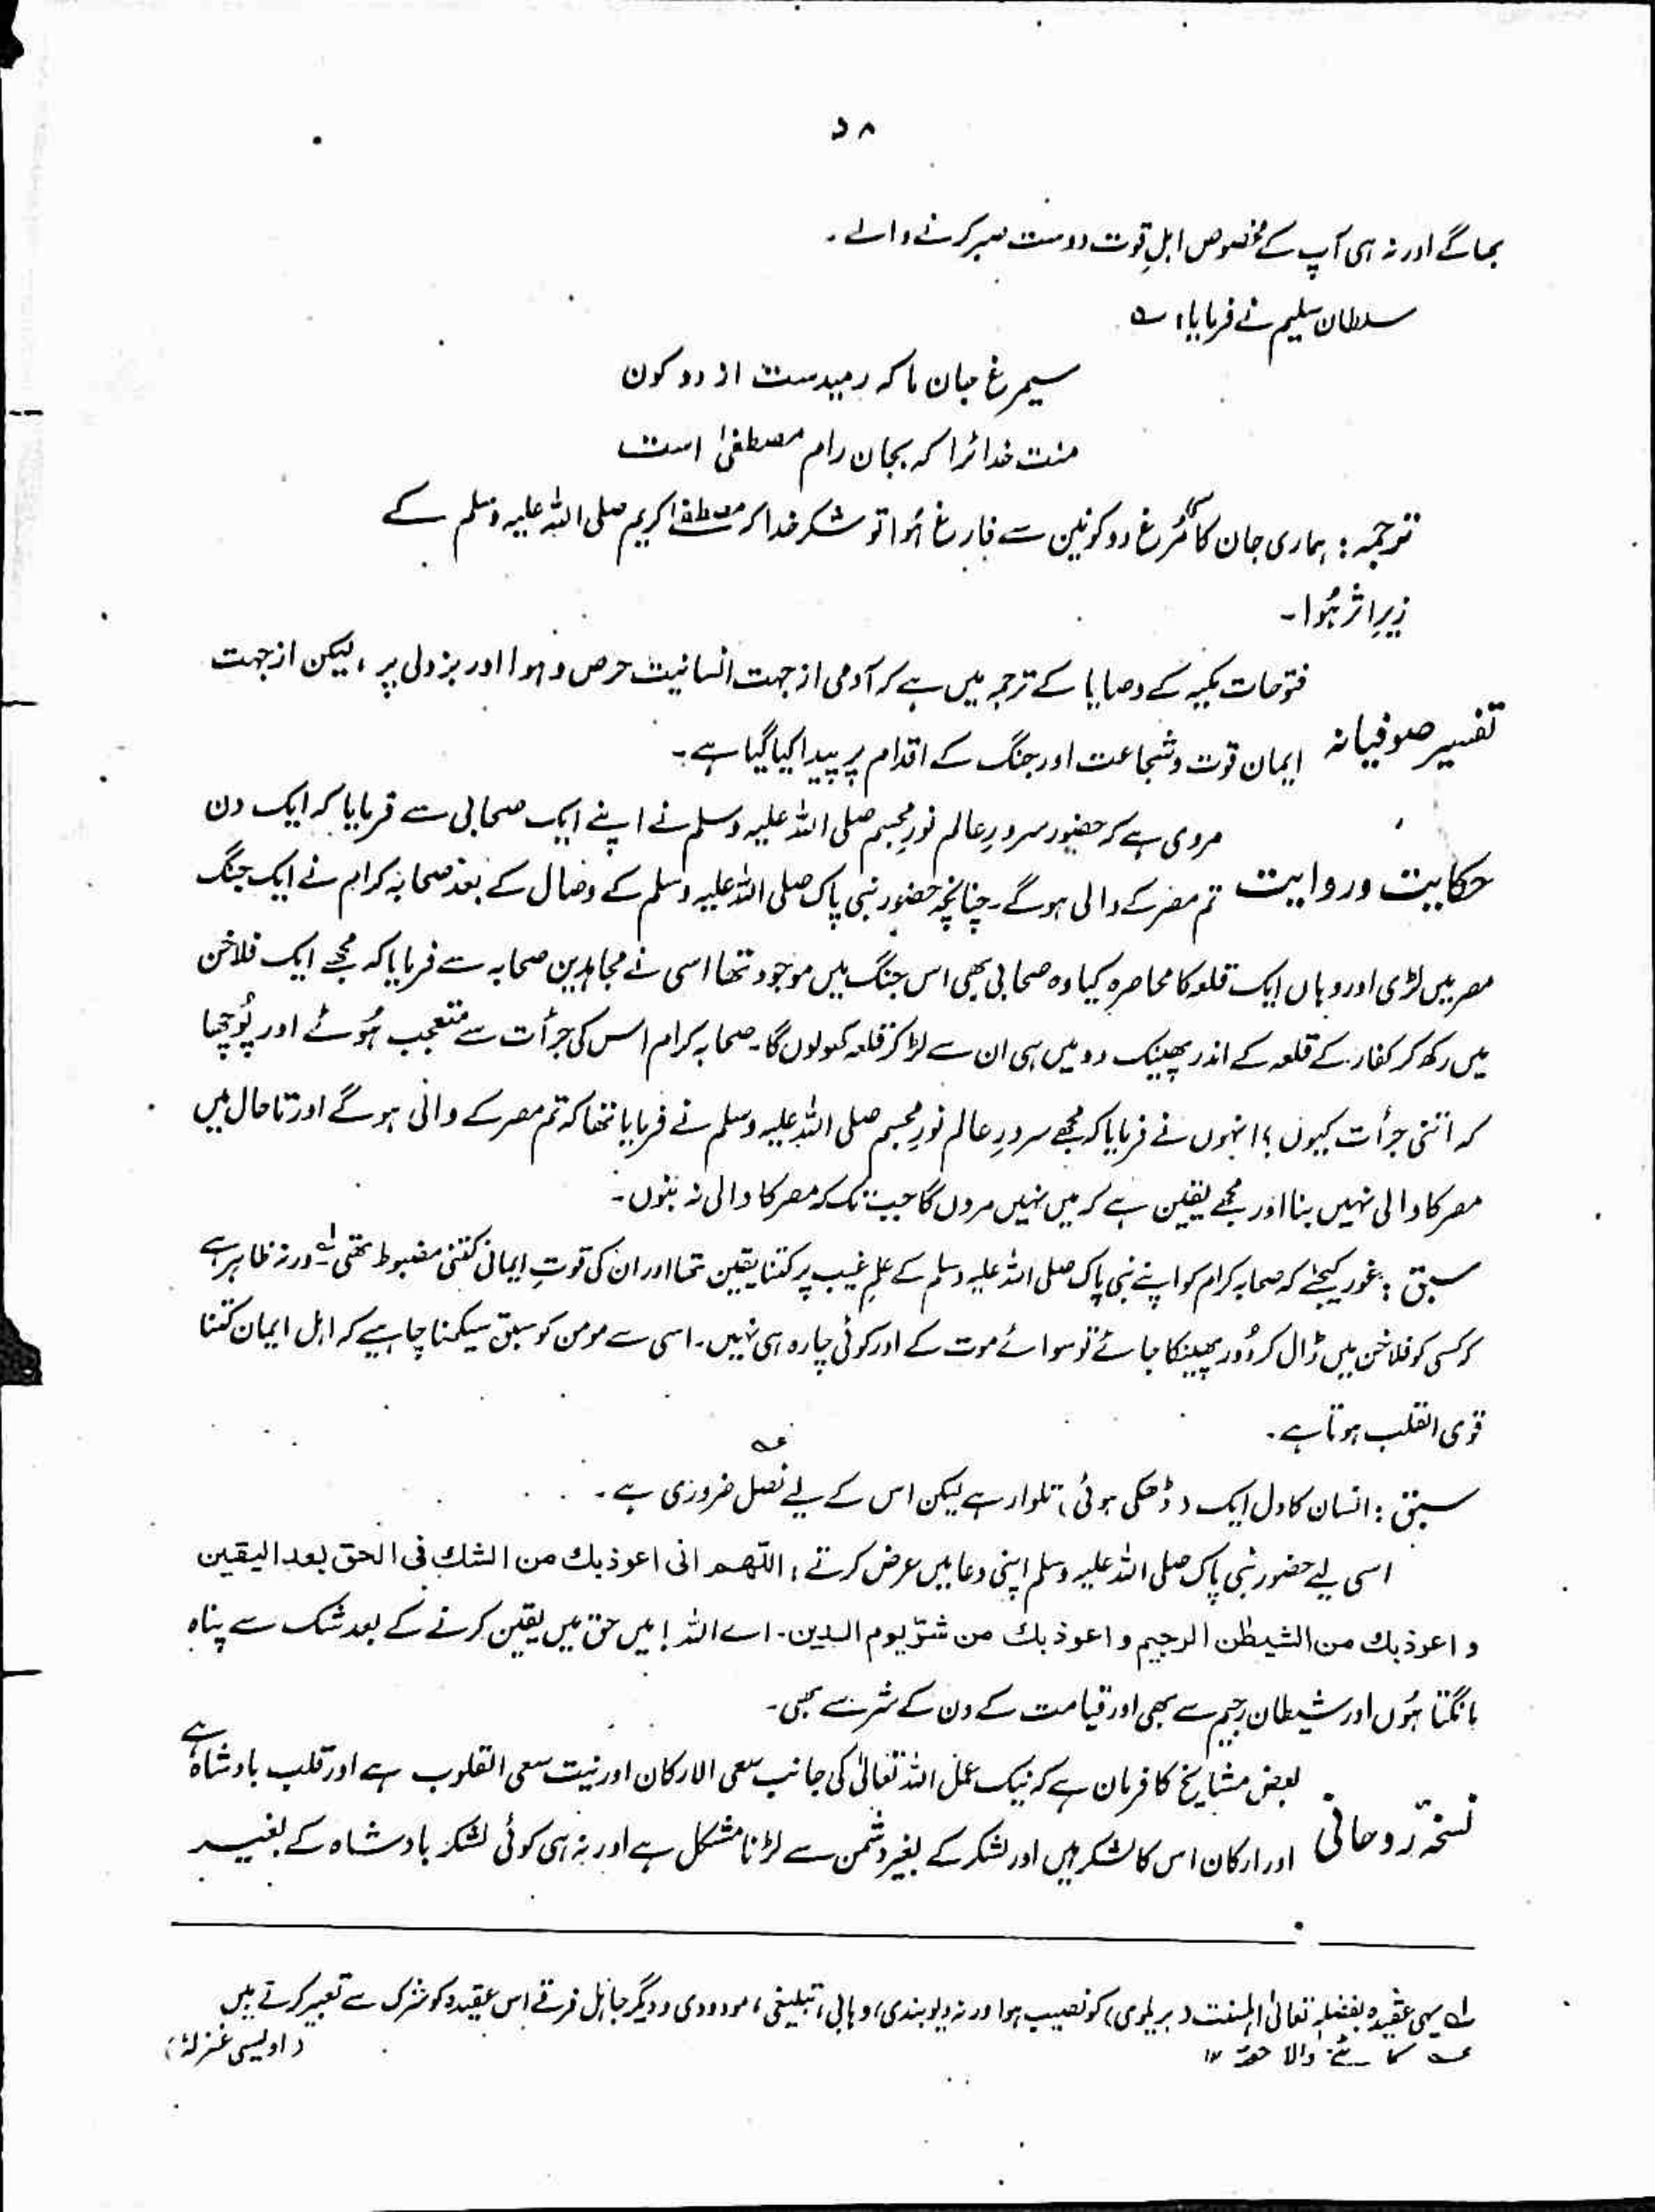 ۵۸
بھاگے اور نہ ہی آپ کے مخصوص اہلِ قوت دوست صبر کرنے والے۔
سلطان سلیم نے فرمایا؛ ؎
سیمرغ جان ما کہ رمیدست از دو کون
منت خدائرا کہ بجان رام مصطفیٰ است
ترجمہ: ہماری جان کا مُرغ دو کونین سے فارغ ہُوا تو شکر خدا کہ مصطفےٰ کریم صلی اللہ علیہ وسلم کے
زیرِ اثر ہُوا۔
فتوحات مکیہ کے وصایا کے ترجمہ میں ہے کہ آدمی از جہت انسانیت حرص و ہوا اور بزدلی پر، لیکن از جہت
تفسیر صوفیانہ ایمان قوت و شجاعت اور جنگ کے اقدام پر پیدا کیا گیا ہے۔
مروی ہے کہ حضور سرورِ عالم نورِ مجسم صلی اللہ علیہ وسلم نے اپنے ایک صحابی سے فرمایا کہ ایک دن
حکایت و روایت تم مصر کے والی ہوگے۔ چنانچہ حضور نبی پاک صلی اللہ علیہ وسلم کے وصال کے بعد صحابہ کرام نے ایک جنگ
مصر میں لڑی اور وہاں ایک قلعہ کا محاصرہ کیا وہ صحابی بھی اس جنگ میں موجود تھا اسی نے مجاہدین صحابہ سے فرمایا کہ مجھے ایک فلاخن
میں رکھ کر کفار کے قلعہ کے اندر پھینک دو میں ہی ان سے لڑ کر قلعہ کھولوں گا۔ صحابہ کرام اس کی جرأت سے متعجب ہُوئے اور پُوچھا
کہ اتنی جرأت کیوں؟ انہوں نے فرمایا کہ مجھے سرورِ عالم نورِ مجسم صلی اللہ علیہ وسلم نے فرمایا تھا کہ تم مصر کے والی ہوگے اور تاحال میں
مصر کا والی نہیں بنا اور مجھے یقین ہے کہ میں نہیں مروں گا جب تک کہ مصر کا والی نہ بنوں۔
سبق: غور کیجئے کہ صحابہ کرام کو اپنے نبی پاک صلی اللہ علیہ وسلم کے علمِ غیب پر کتنا یقین تھا اور ان کی قوتِ ایمانی کتنی مضبوط تھی لہ۔ ورنہ ظاہر ہے
کہ کسی کو فلاخن میں ڈال کر دُور پھینکا جائے تو سوائے موت کے اور کوئی چارہ ہی نہیں۔ اسی سے مومن کو سبق سیکھنا چاہیے کہ اہل ایمان کتنا
قوی القلب ہوتا ہے۔
سبق: انسان کا دل ایک (ڈھکی ہوئی) تلوار ہے لیکن اس کے لیے نصل عہ ضروری ہے۔
اسی لیے حضور نبی پاک صلی اللہ علیہ وسلم اپنی دعا میں عرض کرتے: اللّٰھم انی اعوذبك من الشك فی الحق بعد الیقین
و اعوذبك من الشیطٰن الرجیم و اعوذبك من شرّ یوم الدین۔ اے اللہ! میں حق میں یقین کرنے کے بعد شک سے پناہ
مانگتا ہُوں اور شیطان رجیم سے بھی اور قیامت کے دن کے شر سے بھی۔
بعض مشایخ کا فرمان ہے کہ نیک عمل اللہ تعالیٰ کی جانب سعی الارکان اور نیت سعی القلوب ہے اور قلب بادشاہ ہے
نسخہ روحانی اور ارکان اس کا لشکر ہیں اور لشکر کے بغیر دشمن سے لڑنا مشکل ہے اور نہ ہی کوئی لشکر بادشاہ کے بغیر
لہ یہی عقیدہ بفضلہٖ تعالیٰ اہلسنت (بریلوی) کو نصیب ہوا ورنہ دیوبندی، وہابی، تبلیغی، مودودی و دیگر جاہل فرقے اس عقیدہ کو شرک سے تعبیر کرتے ہیں
(اویسی غفرلہٗ)
عہ کاٹنے والا حصّہ ۱۲